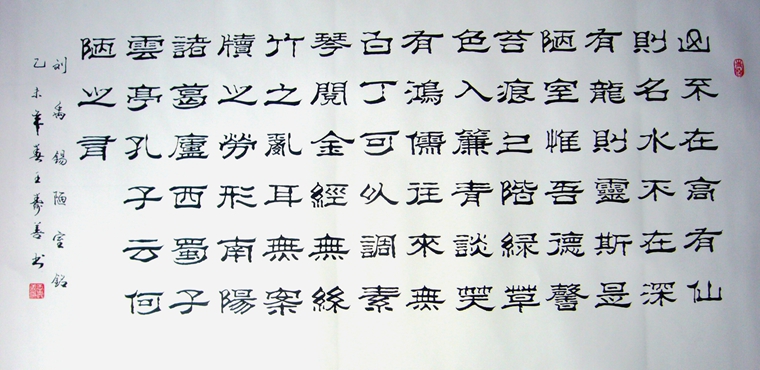 山不在高有仙
則名水不在深
有龍則靈斯是
陋室惟吾德馨
苔痕上階綠草
色入簾青談笑
有鴻儒往來無
白丁可以調素
琴閱金經無絲
竹之亂耳無案
牘之勞形南陽
諸葛廬西蜀子
雲亭孔子云何
陋之有
刘禹锡陋室铭
乙未年王善书